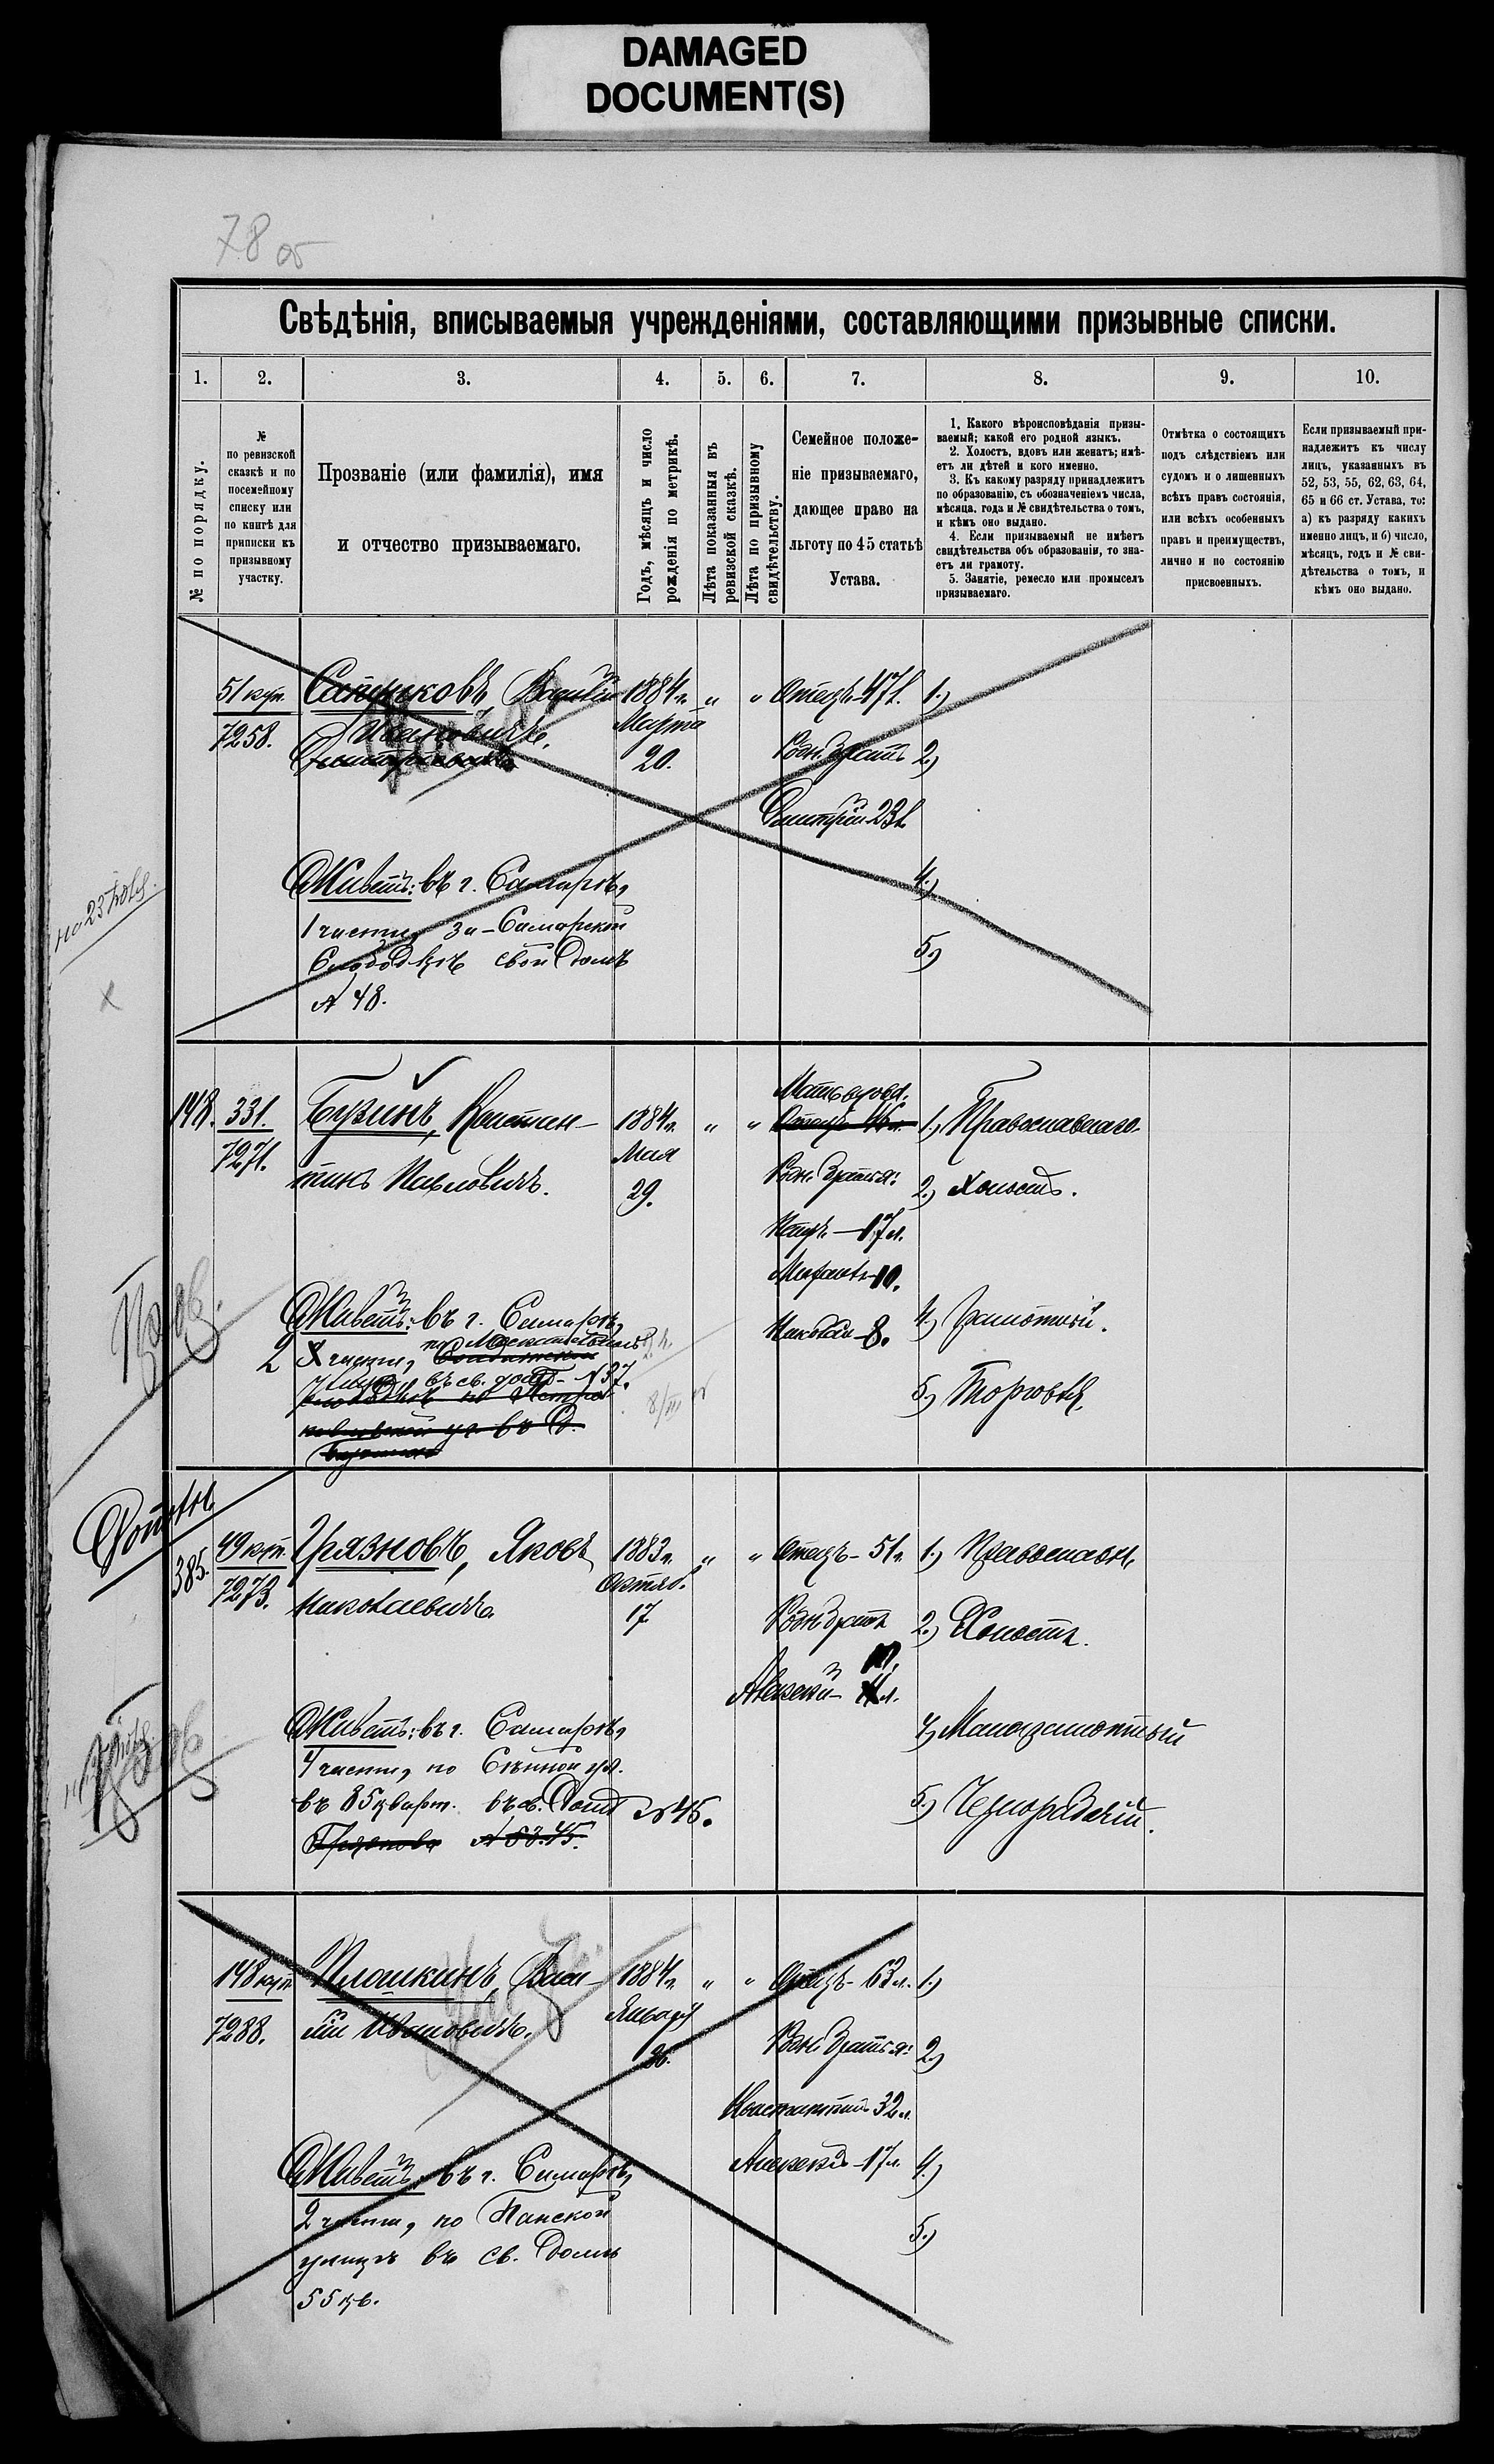 DAMAGED
DOCUMENT(S)
78 об
Свѣдѣнія, вписываемыя учрежденіями, составляющими призывные списки.
1. 2. 3. 4. 5. 6. 7. 8. 9. 10.
№ по порядку.
№
по ревизской
сказкѣ и по
посемейному
списку или
по книгѣ для
приписки къ
призывному
участку.
Прозваніе (или фамилія), имя
и отчество призываемаго.
Годъ, мѣсяцъ и число
рожденія по метрикѣ.
Лѣта показанныя въ
ревизской сказкѣ.
Лѣта по призывному
свидѣтельству.
Семейное положе-
ніе призываемаго,
дающее право на
льготу по 45 статьѣ
Устава.
1. Какого вѣроисповѣданія призы-
ваемый; какой его родной языкъ.
2. Холостъ, вдовъ или женатъ; имѣ-
етъ ли дѣтей и кого именно.
3. Къ какому разряду принадлежитъ
по образованію, съ обозначеніемъ числа,
мѣсяца, года и № свидѣтельства о томъ,
и кѣмъ оно выдано.
4. Если призываемый не имѣетъ
свидѣтельства объ образованіи, то зна-
етъ ли грамоту.
5. Занятіе, ремесло или промыселъ
призываемаго.
Отмѣтка о состоящихъ
подъ слѣдствіемъ или
судомъ и о лишенныхъ
всѣхъ правъ состоянія,
или всѣхъ особенныхъ
правъ и преимуществъ,
лично и по состоянію
присвоенныхъ.
Если призываемый при-
надлежитъ къ числу
лицъ, указанныхъ въ
52, 53, 55, 62, 63, 64,
65 и 66 ст. Устава, то:
а) къ разряду какихъ
именно лицъ, и б) число,
мѣсяцъ, годъ и № сви-
дѣтельства о томъ, и
кѣмъ оно выдано.
51 куп. 1884г. " " Отецъ 47л. 1.)
7258. Ивановичъ, Марта
20. Родн. братъ 2.)
Дмитрій 23л.
Живетъ: въ г. Самарѣ, 4.)
1 части, За-Самарской
Слободкѣ свой домъ 5.)
№ 48.
148. 331. Бузинъ, Констан- 1884г. " " Мать вдова. Отецъ 46л. 1.) Православнаго.
7271. тинъ Павловичъ. Мая
29. Родн. братья: 2.) Холостъ.
Петръ - 17л.
Михаилъ 10.
Николай - 8. 4.) Грамотный.
Живетъ: въ г. Самарѣ,
2 части, по
въ св. домѣ № 37.
5.) Торговля.
385. 49 куп. Грязновъ, Яковъ 1883г. " " Отецъ - 51г. 1.) Православн.
7273. Николаевичъ. Октяб.
17. Родн. братъ 2.) Холостъ.
Алексѣй - 11л.
Живетъ: въ г. Самарѣ, 4.) Малограмотный
4 части, по Сѣнной ул.
въ 85 кварт. въ св. домѣ № 45. 5.) Чернорабочій.
Грязнова
148 куп. Плошкинъ, Васи- 1884г. " " Отецъ - 63л. 1.)
7288. лій Ивановичъ. Январ
26. Родн. братья: 2.)
Константинъ 32л.
Алексѣй - 17л. 4.)
Живетъ: въ г. Самарѣ,
2 части, по Панской 5.)
улицѣ въ св. домѣ
55 кв.